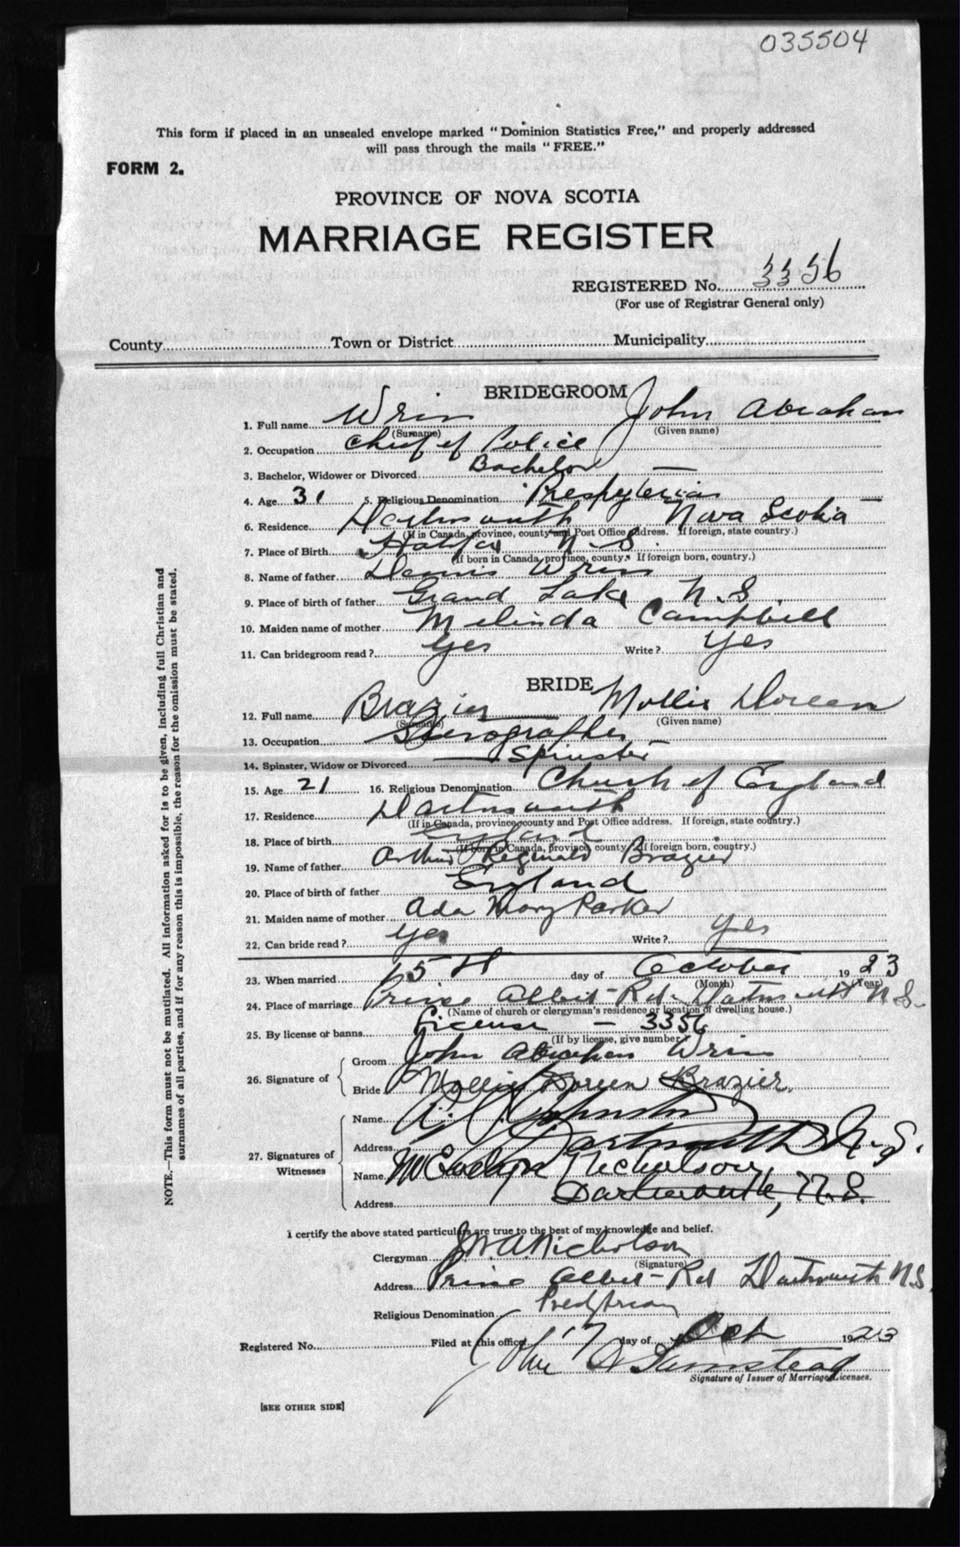 035504
This form if placed in an unsealed envelope marked "Dominion Statistics Free," and properly addressed
will pass through the mails "FREE."
FORM 2.
PROVINCE OF NOVA SCOTIA
MARRIAGE REGISTER
REGISTERED No. 3356
(For use of Registrar General only)
County Town or District Municipality
BRIDEGROOM
1. Full name Wrin John Abraham
(Surname) (Given name)
2. Occupation Chief of Police
3. Bachelor, Widower or Divorced Bachelor
4. Age 31 5. Religious Denomination Presbyterian
6. Residence Dartmouth Nova Scotia
(If in Canada, province, county and Post Office address. If foreign, state country.)
7. Place of Birth Halifax N.S.
(If born in Canada, province, county. If foreign born, country.)
8. Name of father Dennis Wrin
9. Place of birth of father Grand Lake N.S.
10. Maiden name of mother Melinda Campbell
11. Can bridegroom read? Yes Write? Yes
BRIDE
12. Full name Brazier Mollie Doreen
(Surname) (Given name)
13. Occupation Stenographer
14. Spinster, Widow or Divorced Spinster
15. Age 21 16. Religious Denomination Church of England
17. Residence Dartmouth
(If in Canada, province, county and Post Office address. If foreign, state country.)
18. Place of birth England
(If born in Canada, province, county. If foreign born, country.)
19. Name of father Arthur Reginald Brazier
20. Place of birth of father England
21. Maiden name of mother Ada Mary Parker
22. Can bride read? Yes Write? Yes
23. When married 15th day of October 1923
(Month) (Year)
24. Place of marriage Prince Albert Rd. Dartmouth N.S.
(Name of church or clergyman's residence or location of dwelling house.)
25. By license or banns License - 3356
(If by license, give number)
26. Signature of Groom John Abraham Wrin
Bride Mollie Doreen Brazier.
27. Signatures of Witnesses
Name Johnston
Address Dartmouth N.S.
Name Nicholson
Address Dartmouth, N.S.
I certify the above stated particulars are true to the best of my knowledge and belief.
Clergyman Nicholson
(Signature)
Address Prince Albert Rd Dartmouth N.S.
Religious Denomination Presbyterian
Registered No. Filed at this office 17 day of Oct 1923
John
Signature of Issuer of Marriage Licenses.
[SEE OTHER SIDE]
NOTE.—This form must not be mutilated. All information asked for is to be given, including full Christian and
surnames of all parties, and if for any reason this is impossible, the reason for the omission must be stated.